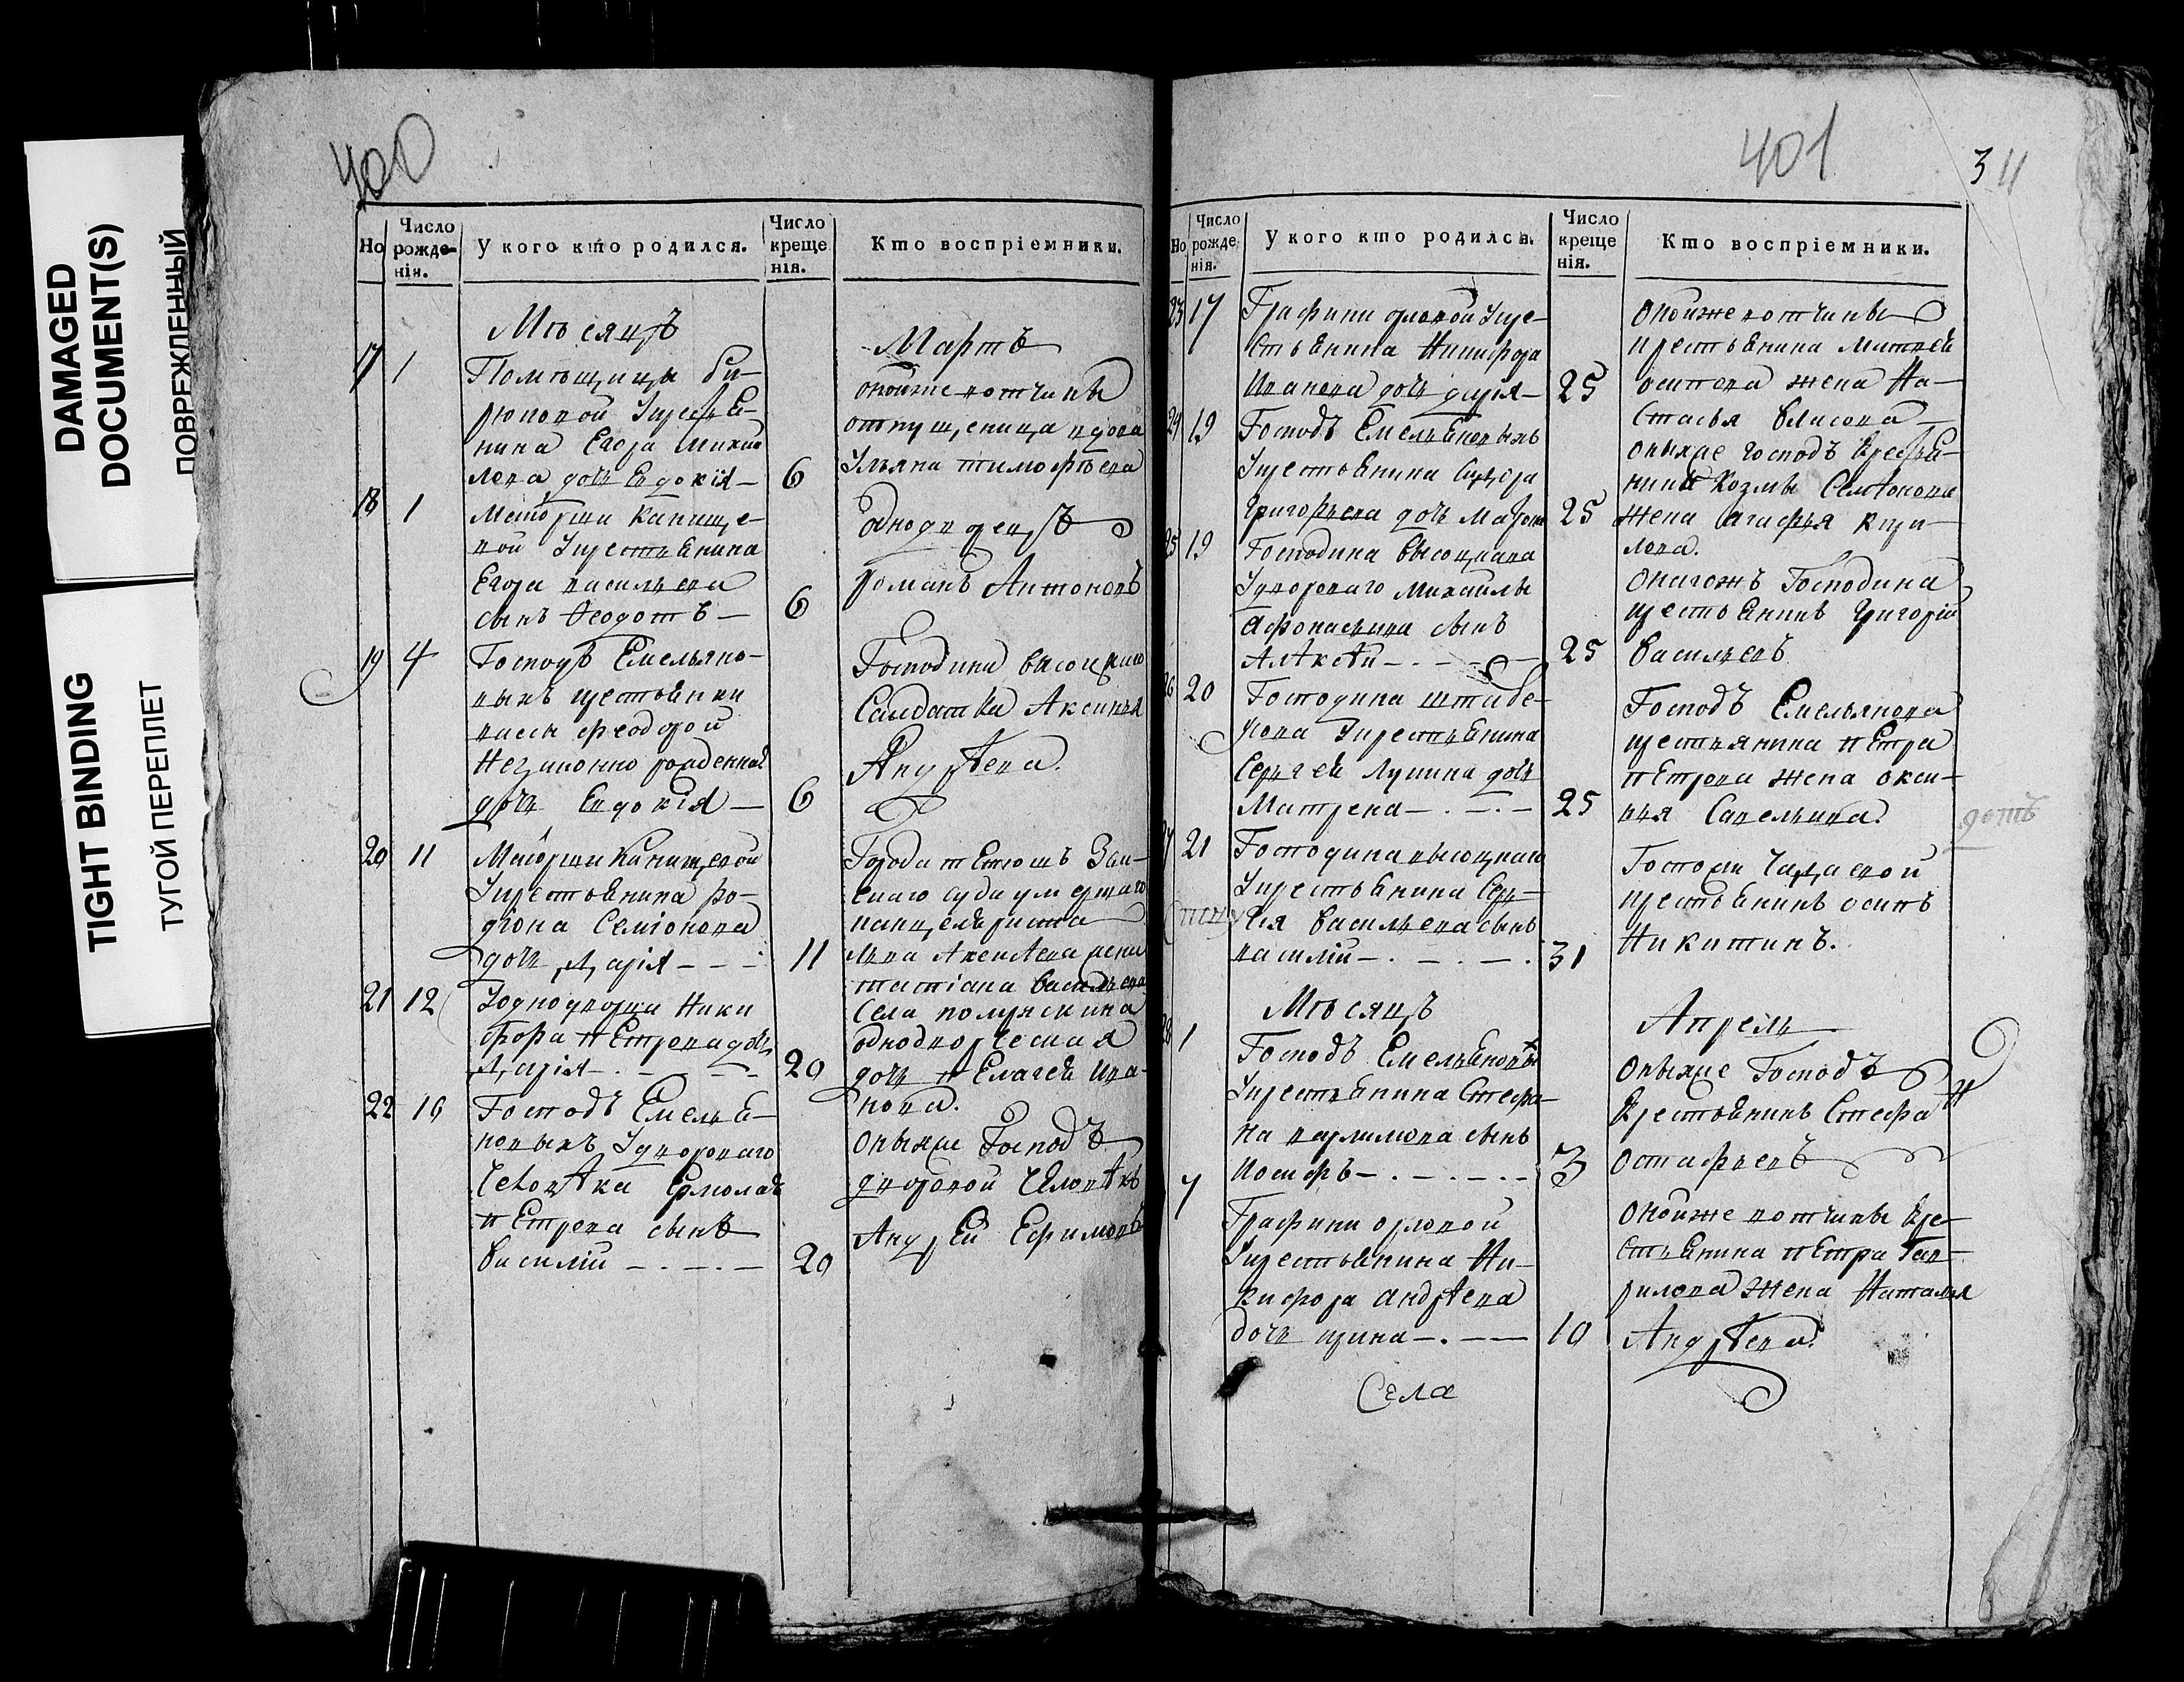 DAMAGED
DOCUMENT(S)
ПОВРЕЖДЕННЫЙ
TIGHT BINDING
ТУГОЙ ПЕРЕПЛЕТ
400
Но
Число рожде-нія.
У кого кто родился.
Число креще нія.
Кто воспріемники.
Мѣсяцъ
Мартъ
17 1 Помѣщицы Би-
рюковой Укресть
нина Егора Михай
лова дочь Евдокія — 6
онойже вотчины
отпущеница вдова
Ульяна тимофѣева
18 1 Маіорши Канище-
вой Укрестьянина
Егора васильева
сынъ Ѳеодотъ — 6
однодворецъ
романъ Антоновъ
19 4 Господъ Емельяно-
выхъ крестьянки
феодорой
Незаконно рожденная
дочь Евдокія — 6
Господина высоцкаго
Салдатка Аксинья
Андрѣева.
20 11 Маіорши Канищевой
Укрестьянина Ро-
діона Семіонова
дочь Дарія - - - 11
Города тетюшъ Зем-
скаго суда умершаго
канцеляриста
льва Алексѣева жена
татіана васильева
21 12 Уоднодворца Ники
фора петрова дочь
Дарія - . - - - 20
Села
однодворческая
дочь пелагея Ива-
нова.
22 19 Господъ Емелья-
новыхъ Удворового
человѣка Ермолая
петрова сынъ
Василій - . - . - 20
оныхже Господъ
дворовой человѣкъ
Андрей Ефимовъ
401
34
Но
Число рожде нія.
У кого кто родился.
Число креще нія.
Кто воспріемники.
23 17 Графини орловой Укре-
стьянина Никифора
Иванова дочь дарія — 25
онойже вотчины
крестьянина Матвея
осипова жена На-
стасья власова
24 19 Господъ Емельяновыхъ
Укрестьянина Сидора
Григорьева дочь 25
оныхже господъ крестья-
нина Козмы Семіонова
жена агафья кири-
лова.
25 19 Господина высоцкаго
Удворового Михайлы
Афонасьева сынъ
Алѣксѣи - . - - - 25
онагожъ Господина
крестьянинъ Григорій
Васильевъ
26 20 Господина
Укрестьянина
Сергея Лупина дочь
Матрена - . - . - 25
Господъ Емельянова
крестьянина петра
петрова жена окси-
нья Савельива.
27 21 Господина высоцкаго
Укрестьянина Сер-
гея Васильева сынъ
василій - . - . - . 31
Госпожи
крестьянинъ осипъ
Никитинъ.
Мѣсяцъ
Апрель
28 1 Господъ Емельяновыхъ
Укрестьянина Стефа-
на варламова сынъ
Иосифъ - . - . - . - 3
оныхже Господъ
крестьянинъ Стефа н
остафьевъ
7 Графини орловой
Укрестьянина Ни-
кифора андрѣева
дочь ирина - . - - 10
онойже вотчины кре-
стьянина петра Гав-
рилова жена Наталья
Андрѣева.
Села